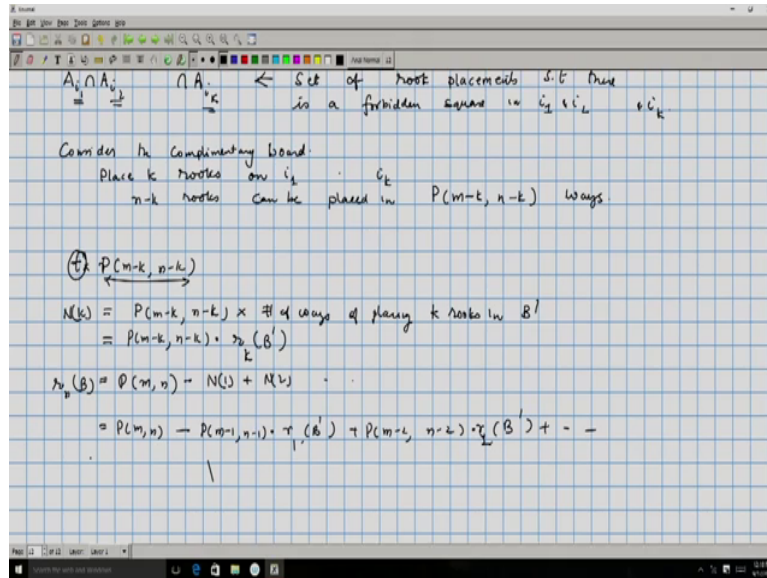 Journal
File Edit View Page Tools Options Help
A_{i_1} ∩ A_{i_2} ∩ A_{i_k} ← Set of rook placements s.t there
is a forbidden square in i_1 & i_2 & i_k
Consider the complimentary board.
Place k rooks on i_1 . i_k
n-k rooks can be placed in P(m-k, n-k) ways.
P(m-k, n-k)
N(k) = P(m-k, n-k) × # of ways of placing k rooks in B'
= P(m-k, n-k) · r_k(B')
r_n(B) = P(m,n) - N(1) + N(2) . .
= P(m,n) - P(m-1, n-1) · r_1(B') + P(m-2, n-2) · r_2(B') + - -
Layer: Layer 1